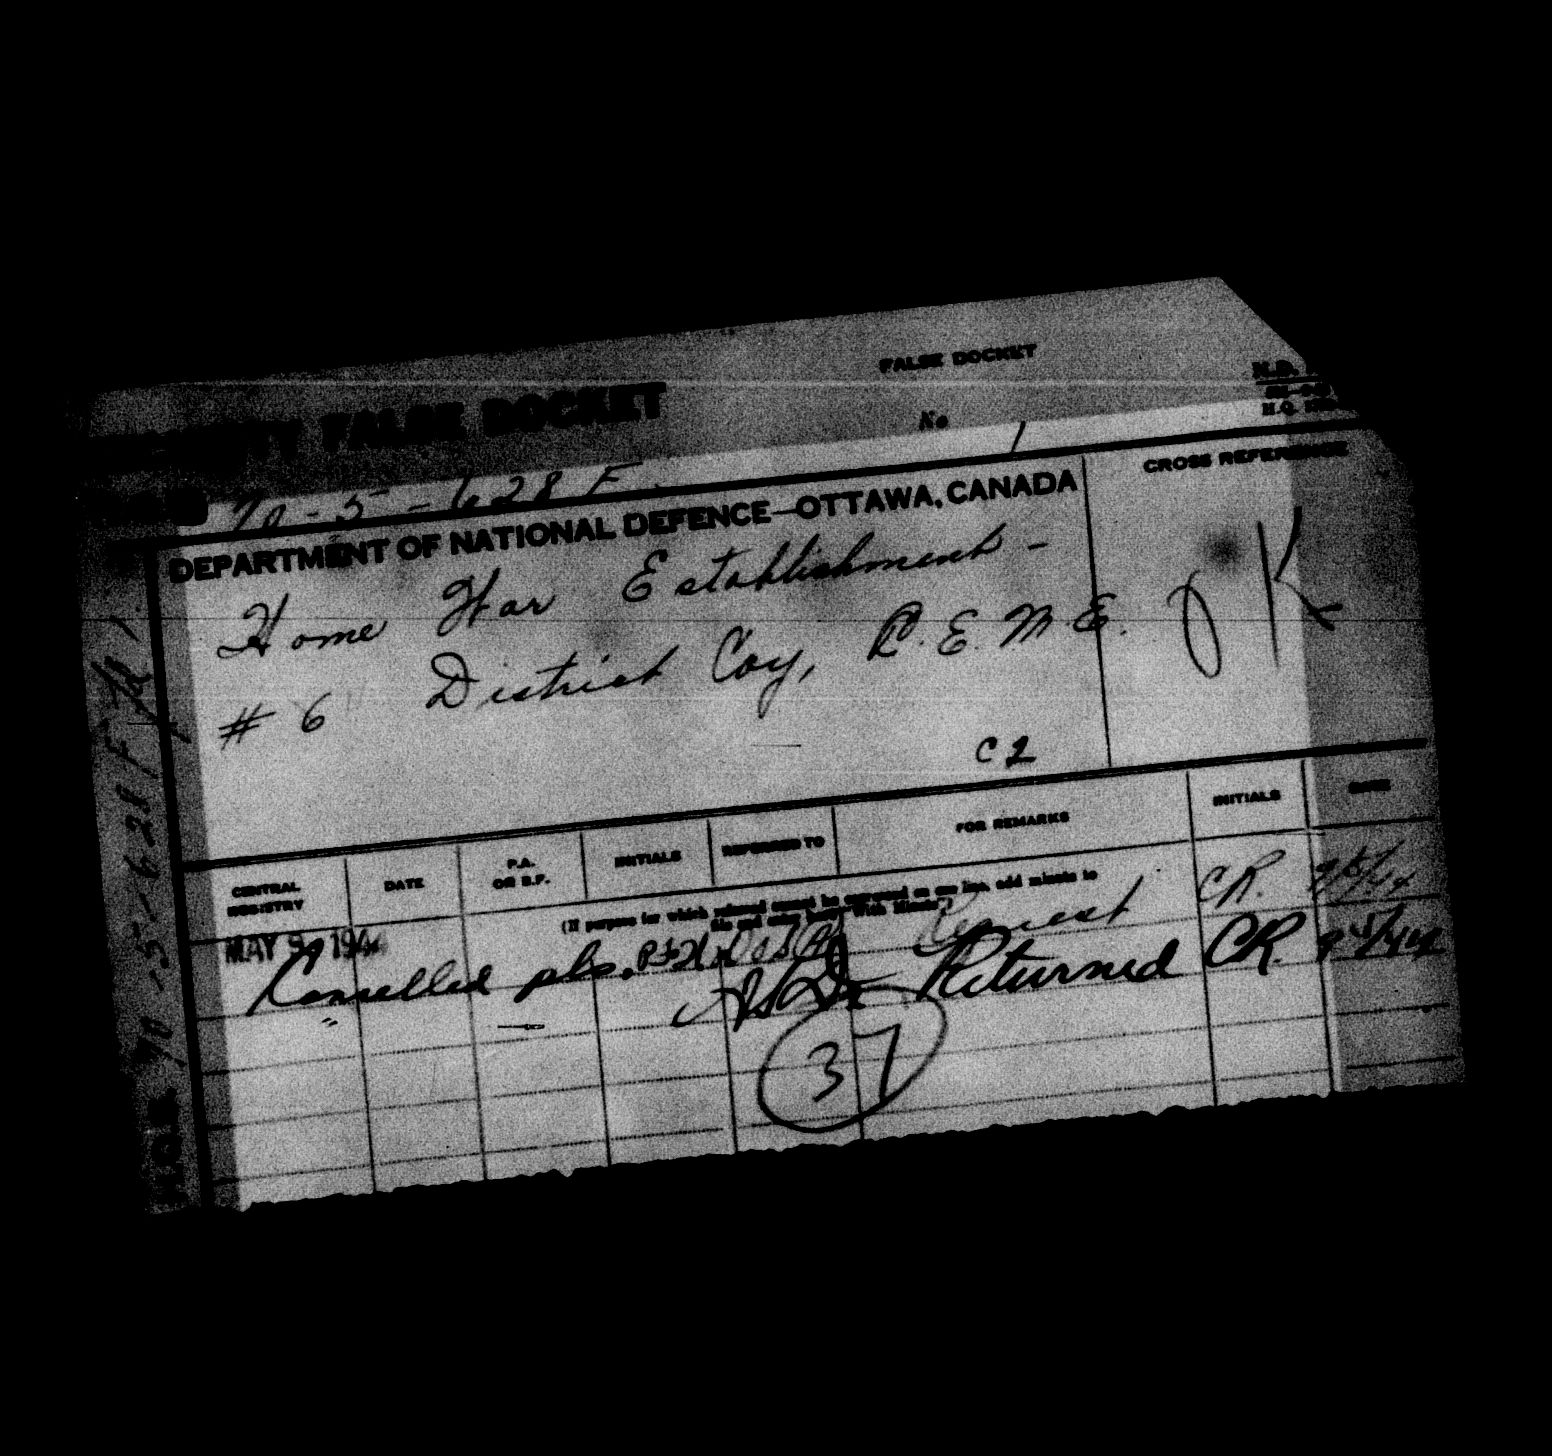 FALSE DOCKET
FALSE DOCKET
No 1
H.Q.
70-5-628 F.
DEPARTMENT OF NATIONAL DEFENCE—OTTAWA, CANADA
CROSS REFERENCE
Home War Establishment -
# 6 District Coy, R.C.E.M.E.
C 2
CENTRAL REGISTRY
DATE
P.A. OR B.F.
INITIALS
REFERRED TO
FOR REMARKS
INITIALS
DATE
(If purpose for which referred cannot be expressed on one line, add minute to file and enter here "With Minute")
MAY 9 1944
Request CR. 9/5/44
Cancelled pls. Returned CR. 9/5/44
37
H.Q.S. 70-5-628 F